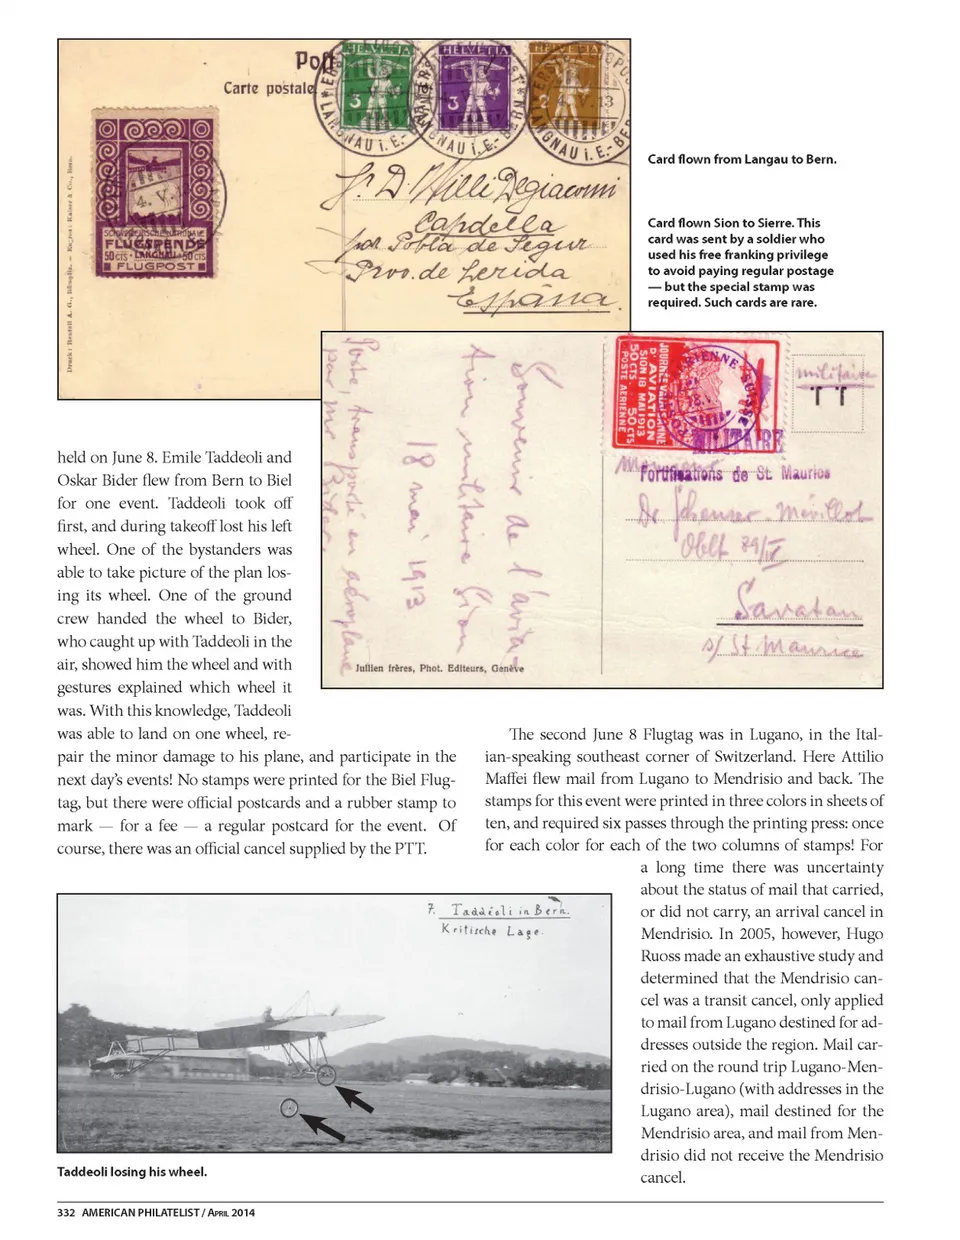 Post
Carte postale
HELVETIA
HELVETIA
HELVETIA
3
3
2
LANGNAU i. E.-BERN
4. V.
SCHWEIZERISCHE NATIONALE
FLUGSPENDE
50 CTS • LANGNAU • 50 CTS
FLUGPOST
Sr. D. Willi Degiacomi
Capdella
por Pobla de Segur
Prov. de Lerida
España.
Card flown from Langau to Bern.
Card flown Sion to Sierre. This
card was sent by a soldier who
used his free franking privilege
to avoid paying regular postage
— but the special stamp was
required. Such cards are rare.
JOURNÉE VALAISANNE
D'AVIATION
SION 18 MAI 1913
50 CTS. 50 CTS
POSTE AÉRIENNE
militaire
T T
MILITAIRE
Fortifications de St. Maurice
Souvenir de l'avia-
tion militaire Sion
18 mai 1913
Poste, transporté en aéroplane
par Mr Bider.
Oblt 89/IV
Savatan
s/ St Maurice
Jullien frères, Phot. Editeurs, Genève
held on June 8. Emile Taddeoli and
Oskar Bider flew from Bern to Biel
for one event. Taddeoli took off
first, and during takeoff lost his left
wheel. One of the bystanders was
able to take picture of the plan los-
ing its wheel. One of the ground
crew handed the wheel to Bider,
who caught up with Taddeoli in the
air, showed him the wheel and with
gestures explained which wheel it
was. With this knowledge, Taddeoli
was able to land on one wheel, re-
pair the minor damage to his plane, and participate in the
next day's events! No stamps were printed for the Biel Flug-
tag, but there were official postcards and a rubber stamp to
mark — for a fee — a regular postcard for the event. Of
course, there was an official cancel supplied by the PTT.
7. Taddéoli in Bern.
Kritische Lage.
Taddeoli losing his wheel.
The second June 8 Flugtag was in Lugano, in the Ital-
ian-speaking southeast corner of Switzerland. Here Attilio
Maffei flew mail from Lugano to Mendrisio and back. The
stamps for this event were printed in three colors in sheets of
ten, and required six passes through the printing press: once
for each color for each of the two columns of stamps! For
a long time there was uncertainty
about the status of mail that carried,
or did not carry, an arrival cancel in
Mendrisio. In 2005, however, Hugo
Ruoss made an exhaustive study and
determined that the Mendrisio can-
cel was a transit cancel, only applied
to mail from Lugano destined for ad-
dresses outside the region. Mail car-
ried on the round trip Lugano-Men-
drisio-Lugano (with addresses in the
Lugano area), mail destined for the
Mendrisio area, and mail from Men-
drisio did not receive the Mendrisio
cancel.
332 AMERICAN PHILATELIST / APRIL 2014